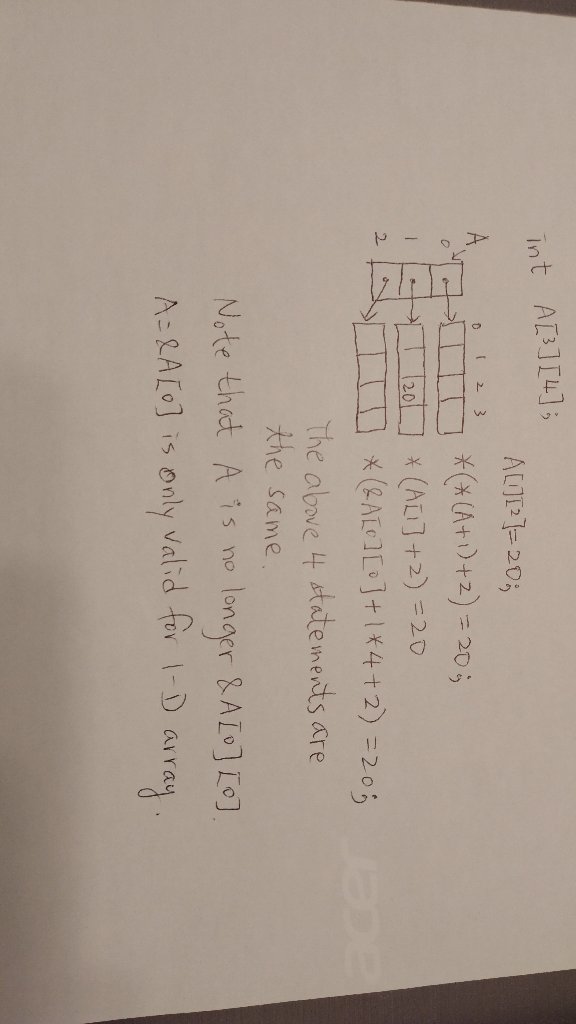 int A[3][4];
A[1][2]=20;
A
0 1 2 3
0
*(*(A+1)+2)=20;
1
20
*(A[1]+2)=20
2
*(&A[0][0]+1*4+2)=20;
acer
The above 4 statements are
the same.
Note that A is no longer &A[0][0].
A=&A[0] is only valid for 1-D array.